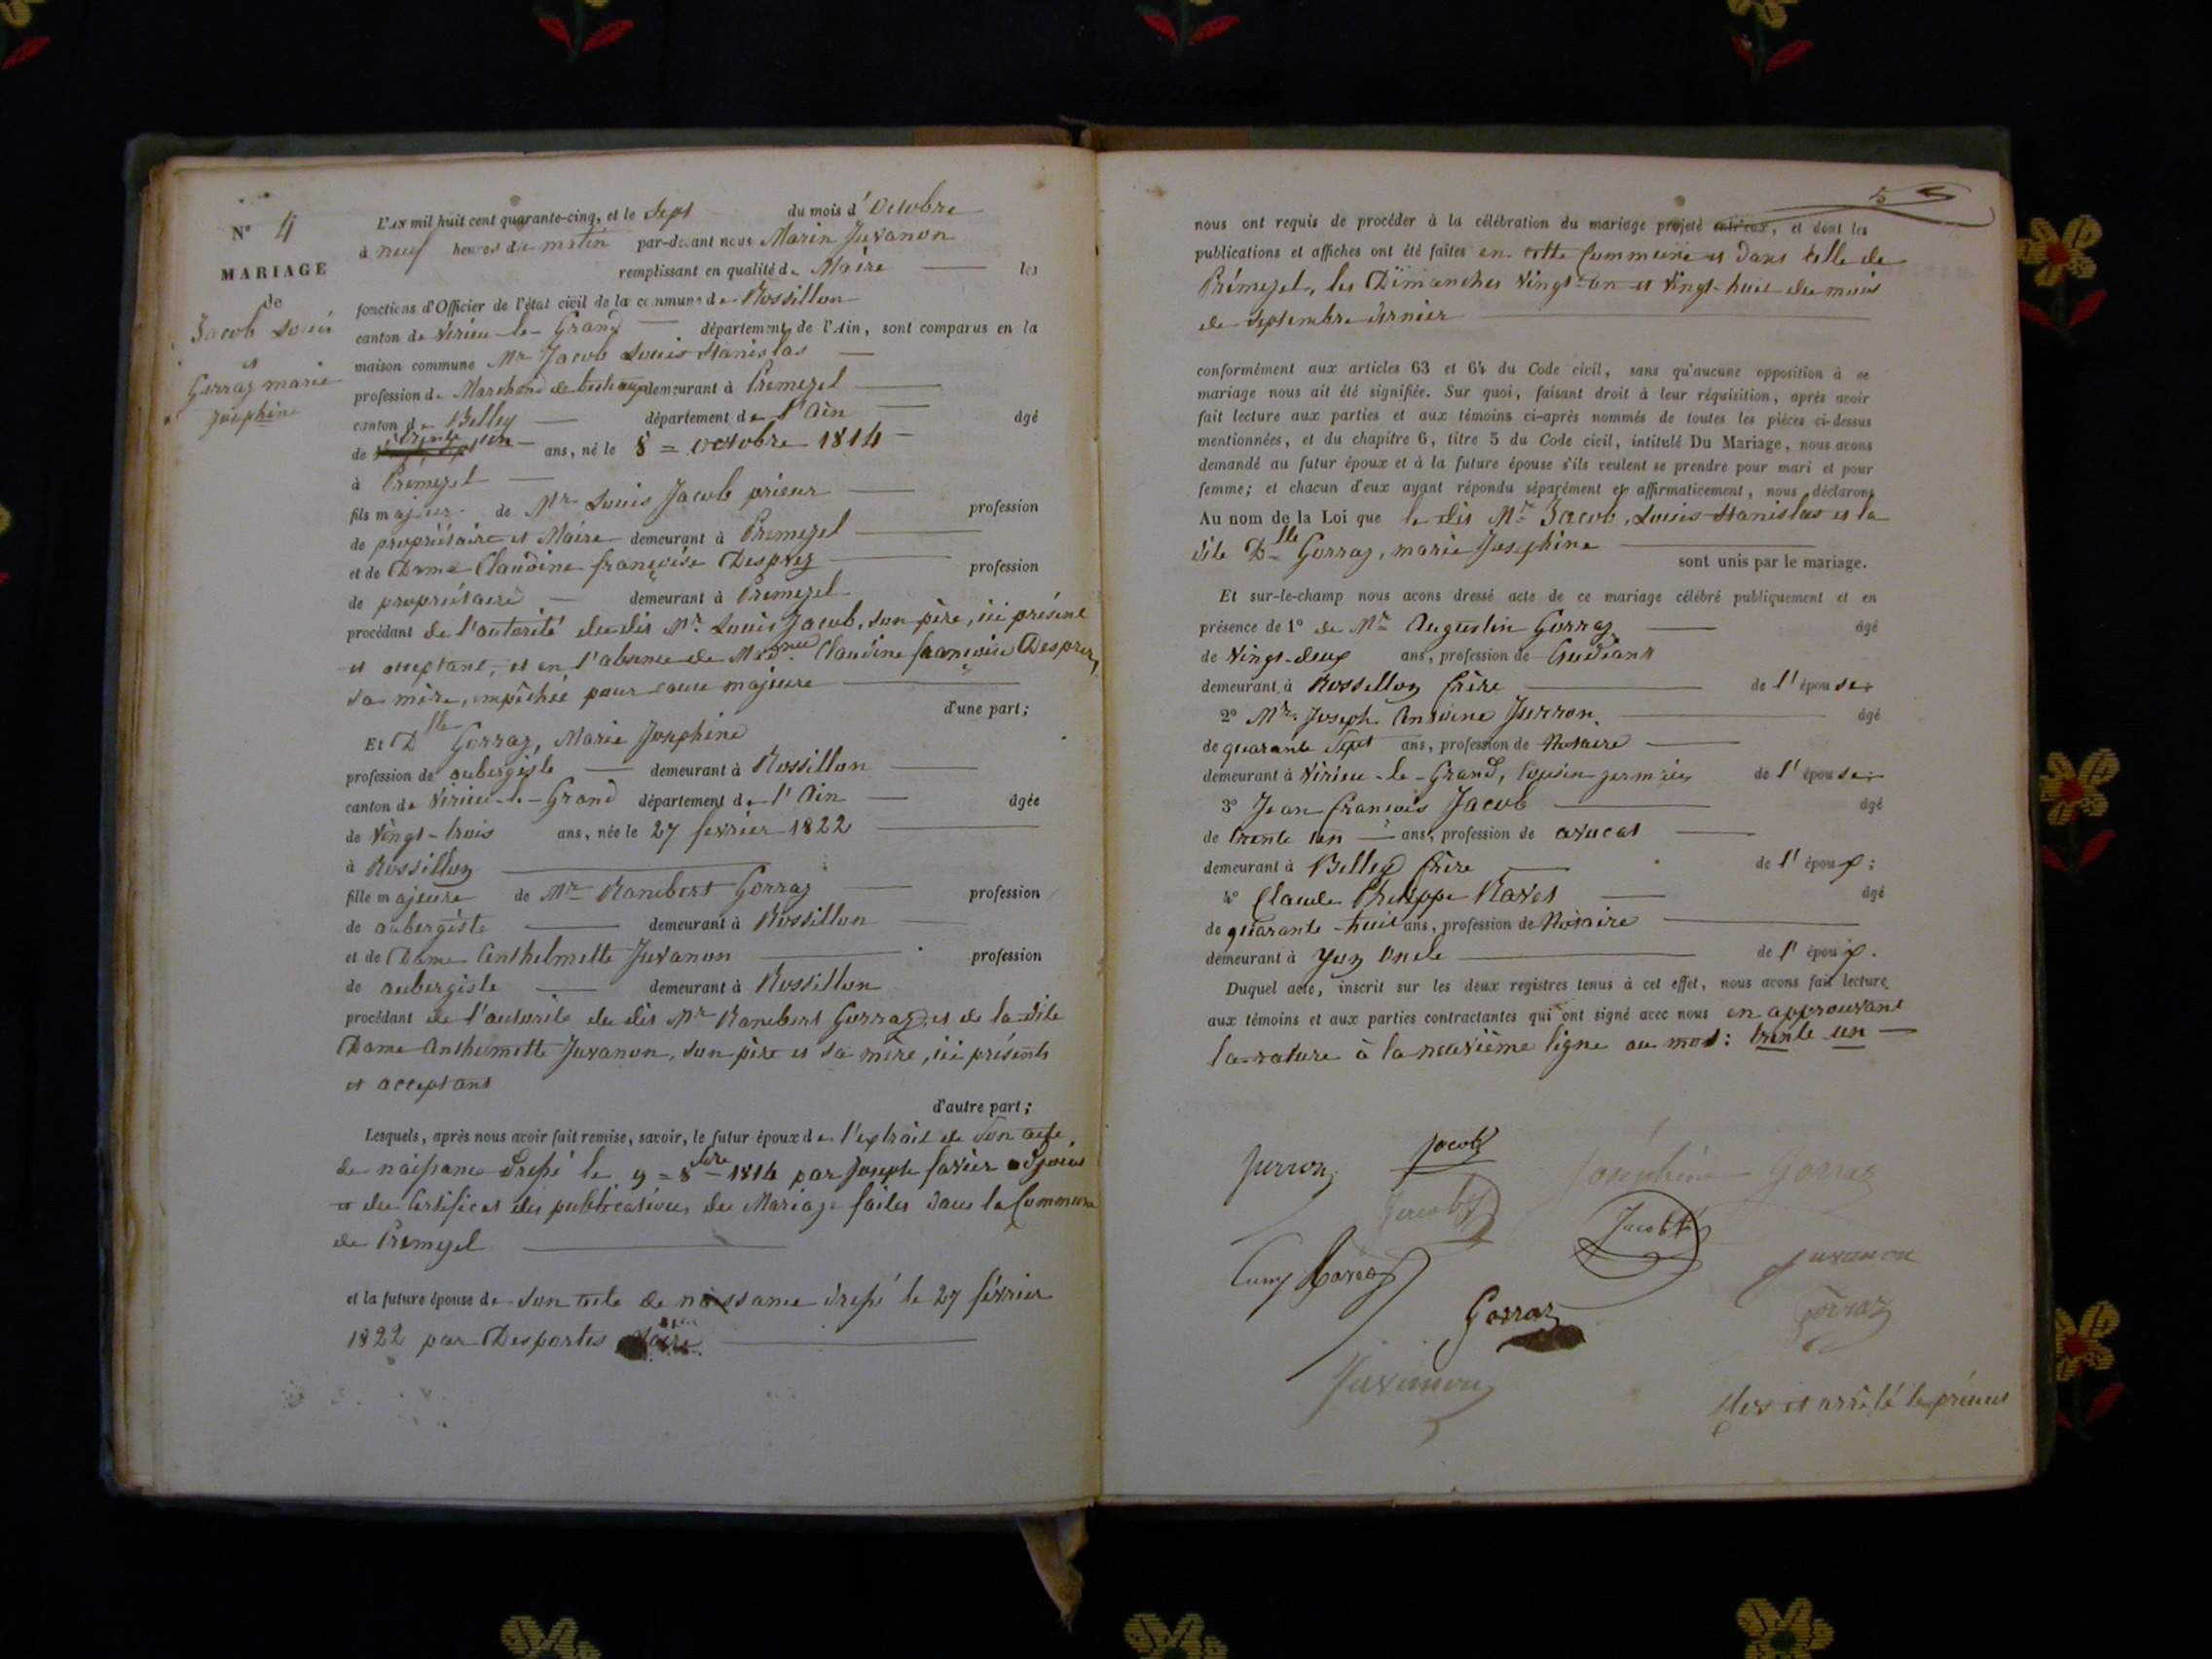 N° 4
MARIAGE
de
Jacob Louis
et
Gorraz marie
Josephine
L'AN mil huit cent quarante-cinq, et le Sept du mois d'Octobre
à neuf heures du matin par-devant nous Marin Juvanon
remplissant en qualité de Maire les
fonctions d'Officier de l'état civil de la commune de Rossillon
canton de Virieu-le-Grand département de l'Ain, sont comparus en la
maison commune Mr Jacob Louis Stanislas
profession de Marchand de bestiaux demeurant à Premeyzel
canton de Belley département de l'Ain âgé
de trente un ans, né le 8 = octobre 1814
à Premeyzel
fils majeur de Mr Louis Jacob prieur profession
de propriétaire et Maire demeurant à Premeyzel
et de Dame Claudine françoise Desprez profession
de propriétaire demeurant à Premeyzel
procédant de l'autorité du dit Mr. Louis Jacob, son père, ici présent
et acceptant, et en l'absence de Madme Claudine françoise Desprez,
sa mère, empêchée pour cause majeure
d'une part;
Et Dlle Gorraz, Marie Josephine
profession de aubergiste demeurant à Rossillon
canton de Virieu-le-Grand département de l'Ain âgée
de Vingt-trois ans, née le 27 fevrier 1822
à Rossillon
fille majeure de Mr Rambert Gorraz profession
de aubergiste demeurant à Rossillon
et de Dame Anthelmette Juvanon profession
de aubergiste demeurant à Rossillon
procédant de l'autorité du dit Mr Rambert Gorraz, et de la dite
Dame Anthelmette Juvanon, son père et sa mère, ici présents
et acceptant
d'autre part;
Lesquels, après nous avoir fait remise, savoir, le futur époux de l'extrait de Son acte
de naissance dressé le 9 = 8bre 1814 par Joseph favier adjoint
et du Certificat des publications du Mariage faites dans la Commune
de Premeyzel
et la future épouse de son acte de naissance dressé le 27 février
1822 par Desportes Maire
5
nous ont requis de procéder à la célébration du mariage projeté entr'eux, et dont les
publications et affiches ont été faites en cette Commune et dans celle de
Prémeyzel, les Dimanches Vingt-un et Vingt-huit du mois
de Septembre dernier
conformément aux articles 63 et 64 du Code civil, sans qu'aucune opposition à ce
mariage nous ait été signifiée. Sur quoi, faisant droit à leur réquisition, après avoir
fait lecture aux parties et aux témoins ci-après nommés de toutes les pièces ci-dessus
mentionnées, et du chapitre 6, titre 5 du Code civil, intitulé Du Mariage, nous avons
demandé au futur époux et à la future épouse s'ils veulent se prendre pour mari et pour
femme; et chacun d'eux ayant répondu séparément et affirmativement, nous déclarons
Au nom de la Loi que le dit Mr Jacob, Louis Stanislas et la
dite Dlle Gorraz, marie Josephine
sont unis par le mariage.
Et sur-le-champ nous avons dressé acte de ce mariage célébré publiquement et en
présence de 1° de Mr Augustin Gorraz âgé
de Vingt-deux ans, profession de Etudiant
demeurant à Rossillon frère de l'épouse.
2° Mr. Joseph Antoine Jierron âgé
de quarante Sept ans, profession de Notaire
demeurant à Virieu-le-Grand, Cousin germain de l'épouse.
3° Jean François Jacob âgé
de trente un ans, profession de avocat
demeurant à Belley frère de l'époux;
4° Claude Philippe Ravet âgé
de quarante-huit ans, profession de Notaire
demeurant à Yen Oncle de l'époux.
Duquel acte, inscrit sur les deux registres tenus à cet effet, nous avons fait lecture
aux témoins et aux parties contractantes qui ont signé avec nous en approuvant
la rature à la neuvième ligne au mot: trente un
Jacob
Joséphine Gorraz
Jacob
Jacob
Juvanon
Gorraz
Gorraz
Juvanon
Clos et arrêté le présent